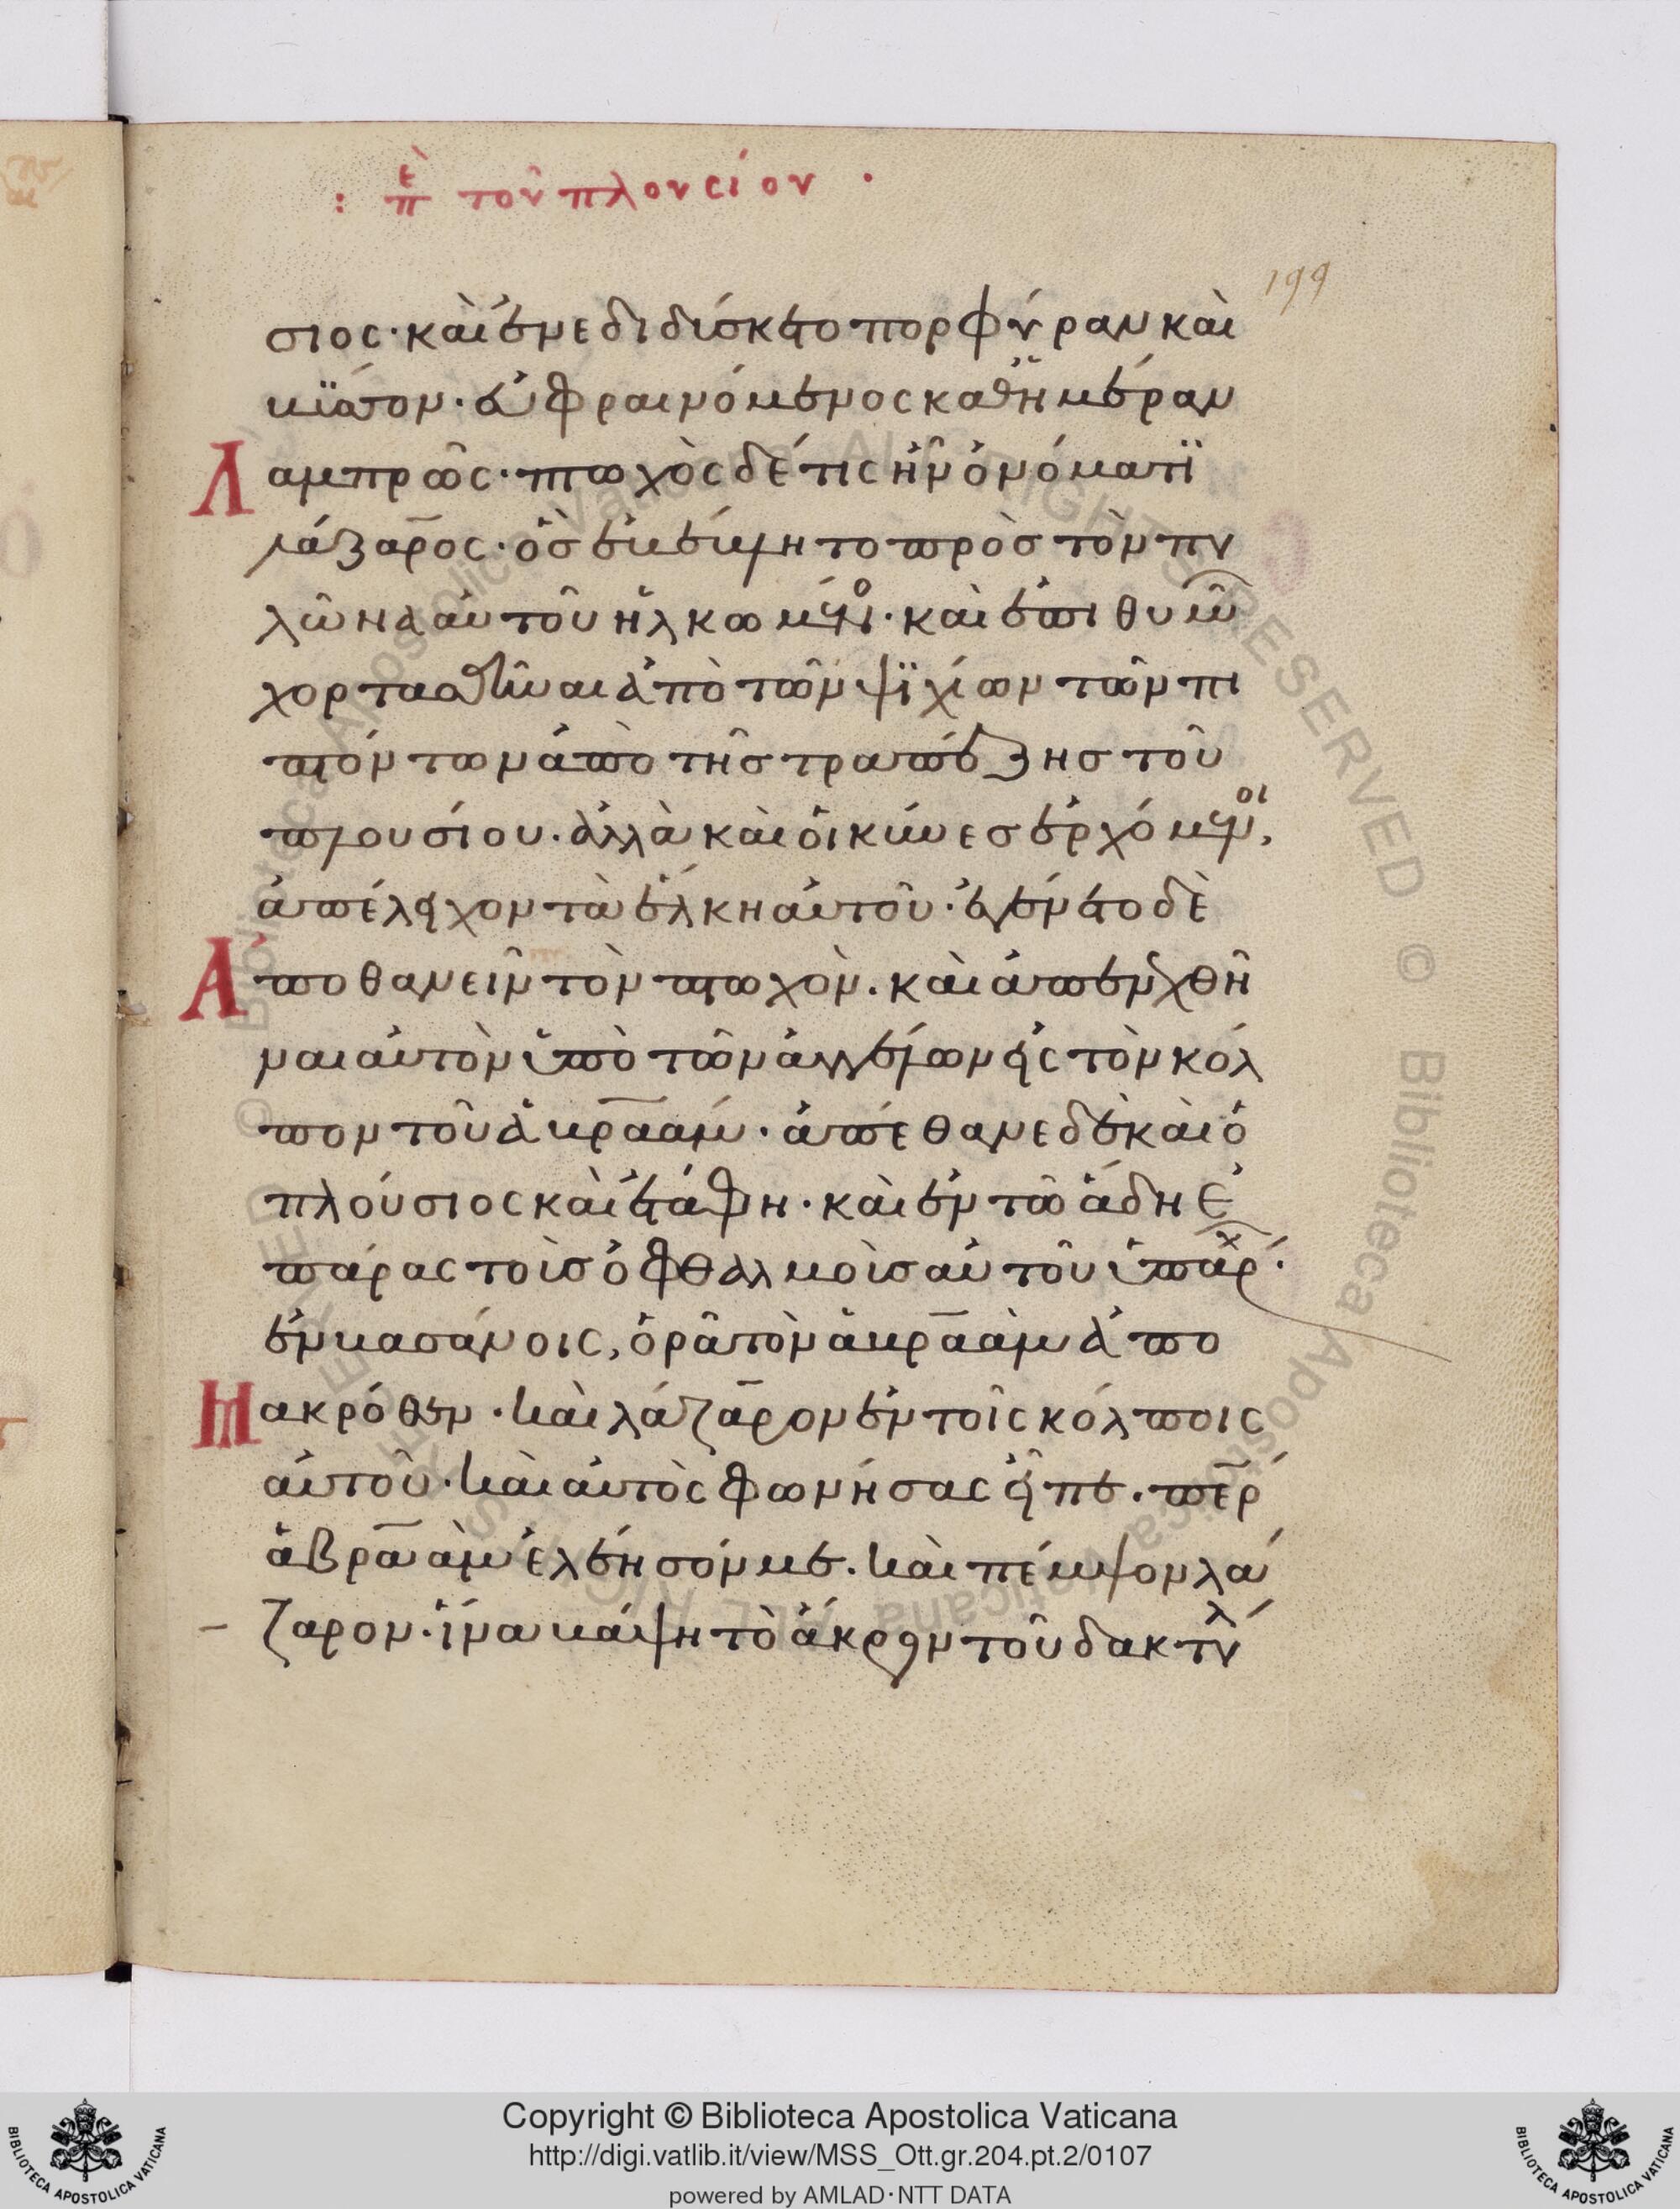 : επὶ τοῦ πλουσίου ·
199
σιος· καὶ ἐνεδιδύσκετο πορφύραν καὶ
βύσσον· εὐφραινόμενος καθημέραν
λαμπρῶς· πτωχὸς δέ τις ἦν ὀνόματϊ
λάζαρος· ὃς ἐβέβλητο πρὸς τὸν πυ
λῶνα αὐτοῦ ἡλκωμένο· καὶ ἐπιθυμῶ
χορτασθῆναι ἀπὸ τῶν ψϊχίων τῶν πι
πτόντων ἀπὸ τῆς τραπέζης τοῦ
πλουσίου. ἀλλὰ καὶ οἱ κύνες ἐρχόμενοι,
ἀπέλειχον τὰ ἕλκη αὐτοῦ· ἐγένετο δὲ
ἀποθανεῖν τὸν πτωχὸν. καὶ ἀπενεχθῆ
ναι αὐτὸν ὑπὸ τῶν ἀγγέλων εἰς τὸν κόλ
πον τοῦ ἀβραάμ· ἀπέθανε δὲ καὶ ὁ
πλούσιος καὶ ἐτάφη· καὶ ἐν τῶ ἅδη ἐ
πάρας τοὶς ὀφθαλμοὶς αὐτοῦ ὑπάρχ·
ἐν βασάνοις, ὁρᾶ τὸν ἀβραὰμ ἀπο
μακρόθεν· καὶ λάζαρον ἐν τοῖς κόλποις
αὐτοῦ· καὶ αὐτὸς φωνήσας εἶπε. περ
ἀβραὰμ ἐλέησόν με. καὶ πέμψον λά
ζαρον· ἵνα βάψη τὸ ἄκρον τοῦ δακτύλ
Copyright © Biblioteca Apostolica Vaticana
http://digi.vatlib.it/view/MSS_Ott.gr.204.pt.2/0107
powered by AMLAD·NTT DATA